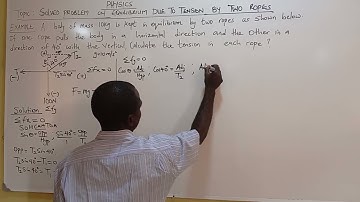 PHYSICS
Topic: SOLVED PROBLEM ON EQUILIBRIUM DUE TO TENSION BY TWO ROPES
EXAMPLE 1: body of mass 10kg is kept in equilibrium by two ropes as shown below
If one rope pulls the body in a horizontal direction and the other in a
direction of 40° with the vertical. Calculate the tension in each rope?
ΣFy=0
ΣFx=0 Cosθ=Adj/Hyp, Cos40°=Adj/T2,
F=mg
100N
Solution
Σfy
Σfx=0
SOHCAHTOA
Sinθ=Opp/Hyp, Sin40°=Opp/T2
Opp=T2Sin40°
T2Sin40°-T1=0
T2Sin40°=T1